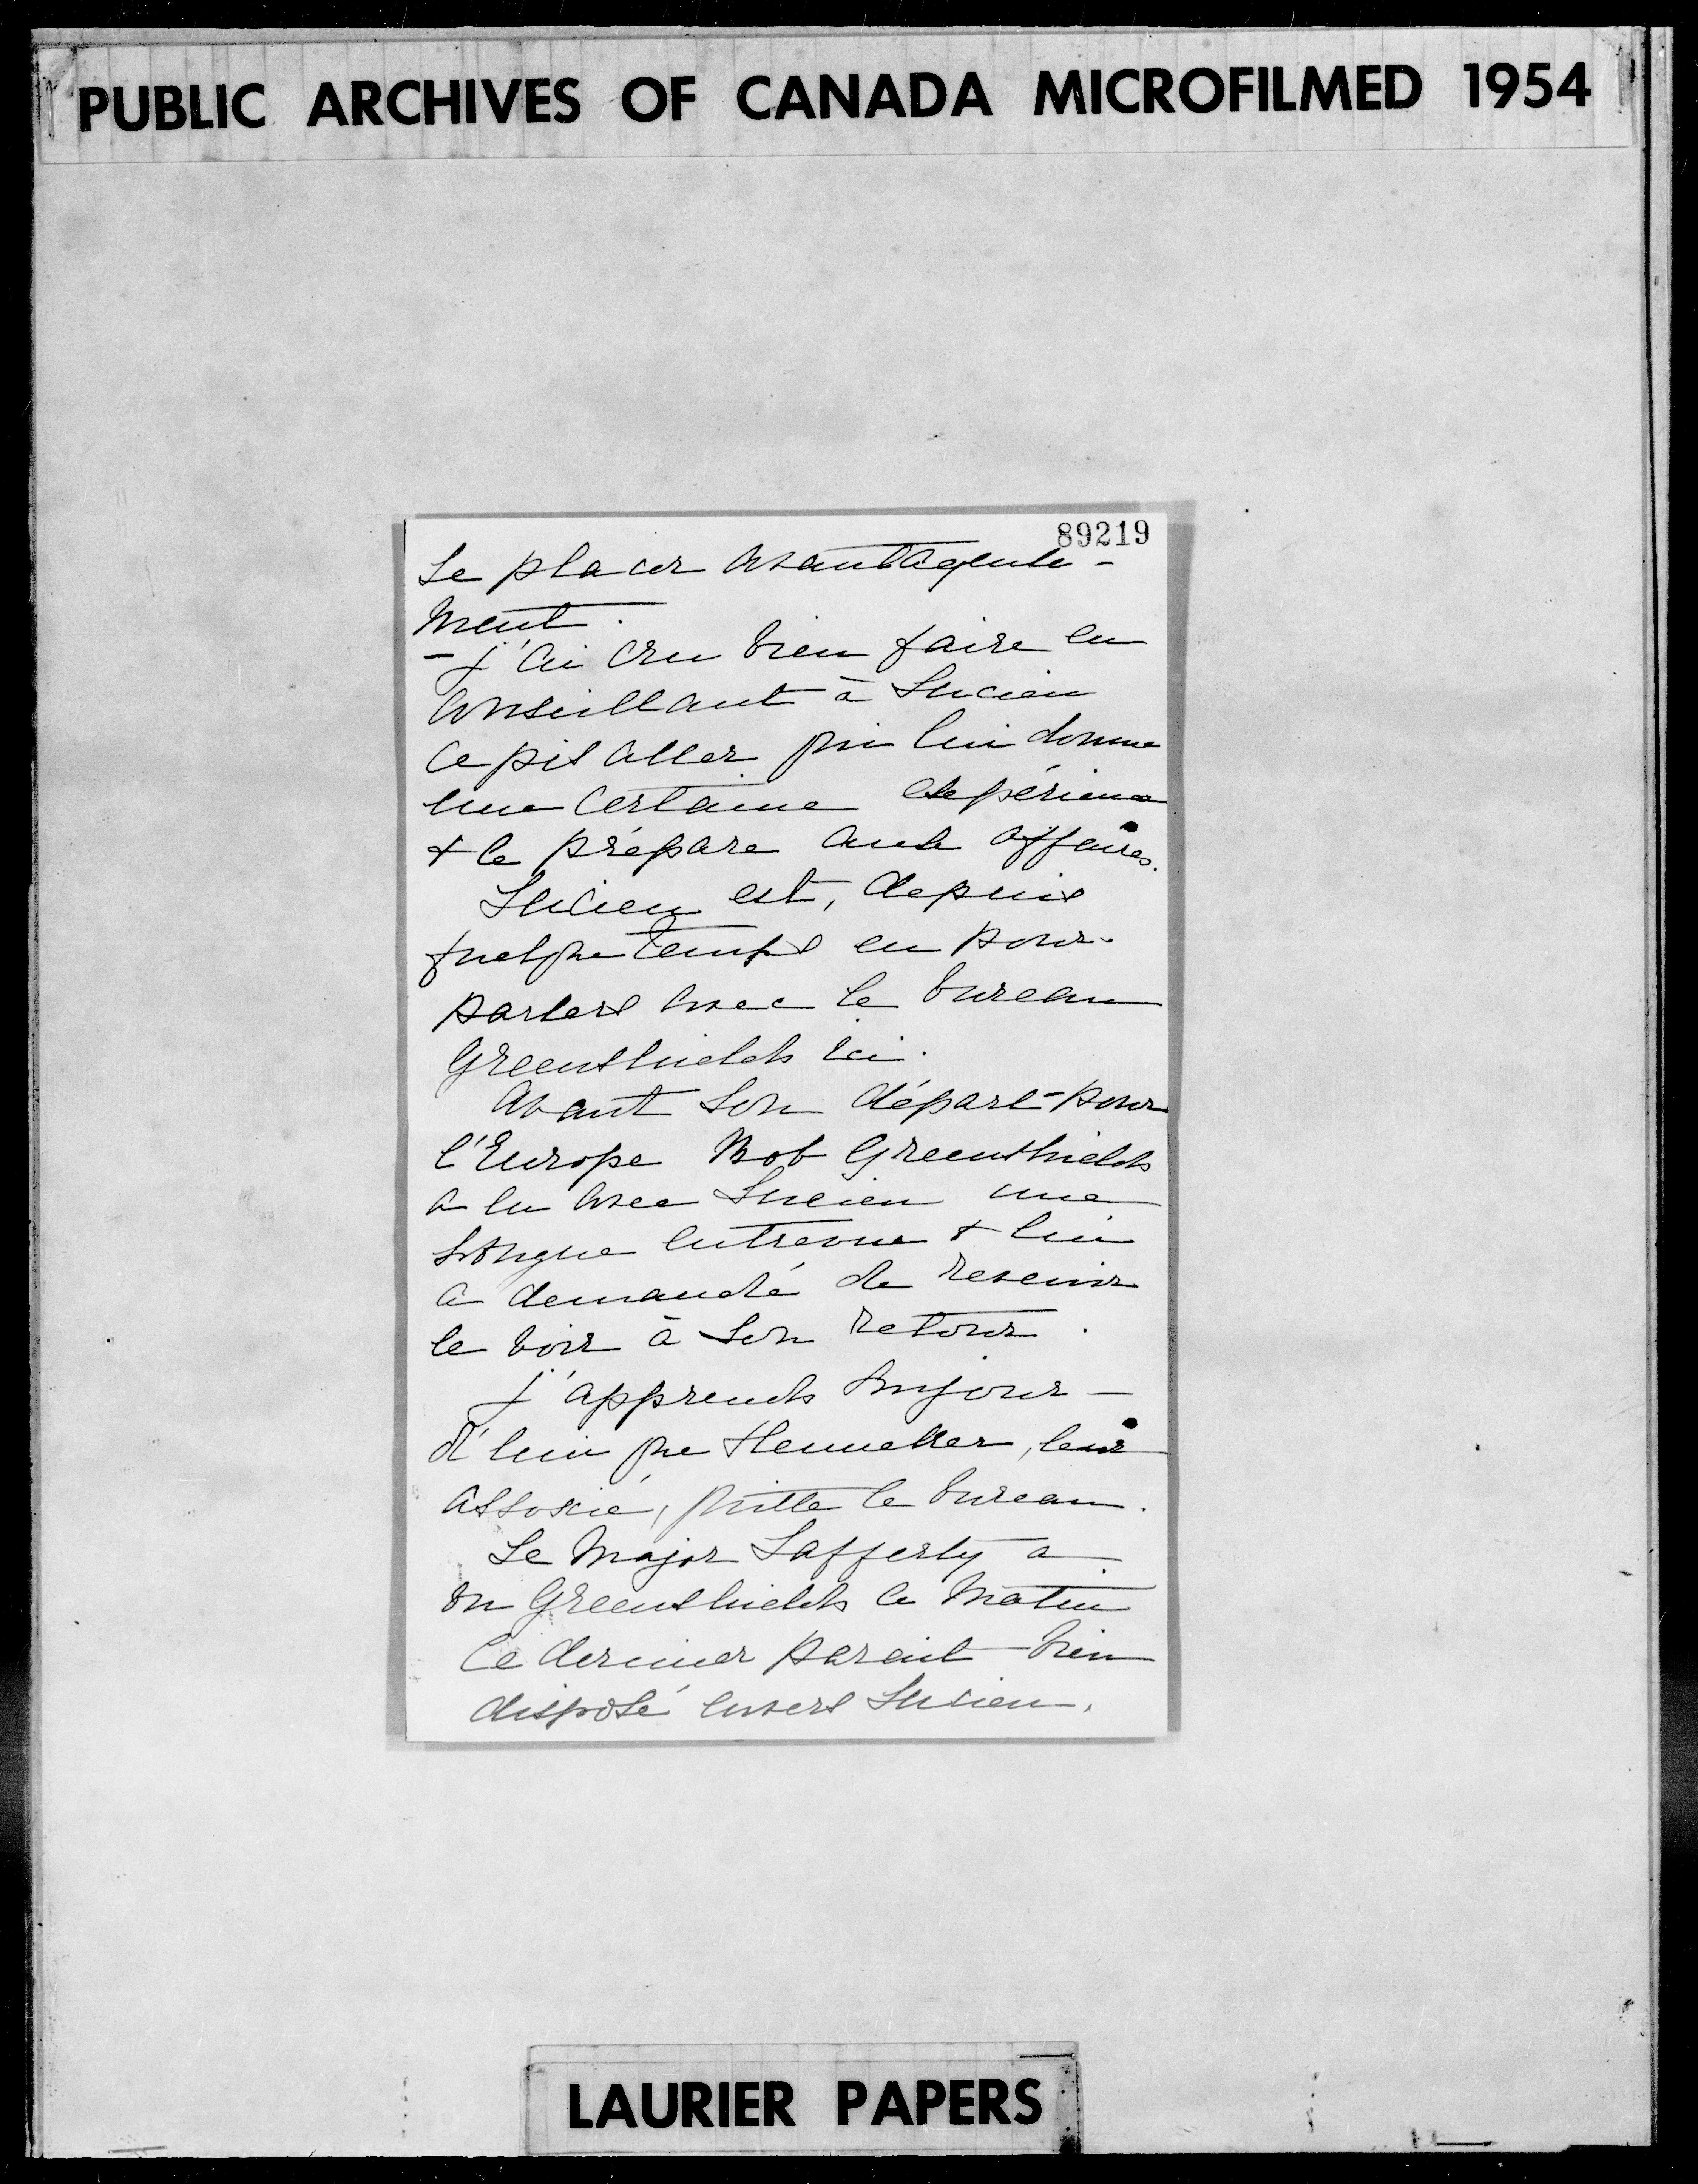 PUBLIC ARCHIVES OF CANADA MICROFILMED 1954
89219
se placer avantageuse-
ment.
- J'ai cru bien faire en
conseillant à Lucien
ce pis aller qui lui donne
une certaine expérience
& le prépare aux affaires.
Lucien est, depuis
quelque temps en pour-
parlers avec le bureau
Greenshields ici.
Avant son départ pour
l'Europe Bob Greenshields
a eu avec Lucien une
longue entrevue & lui
a demandé de revenir
le voir à son retour.
J'apprends aujour-
d'hui que Henneker, leur
associé, quitte le bureau.
Le Major Lafferty a
vu Greenshields ce matin
Ce dernier parait bien
disposé envers Lucien.
LAURIER PAPERS